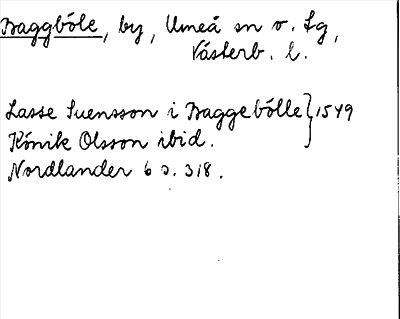 Baggböle, by, Umeå sn o. tg,
Västerb. l.
Lasse Suensson i Baggebölle } 1549
Könik Olsson ibid.
Nordlander 6 s. 318.